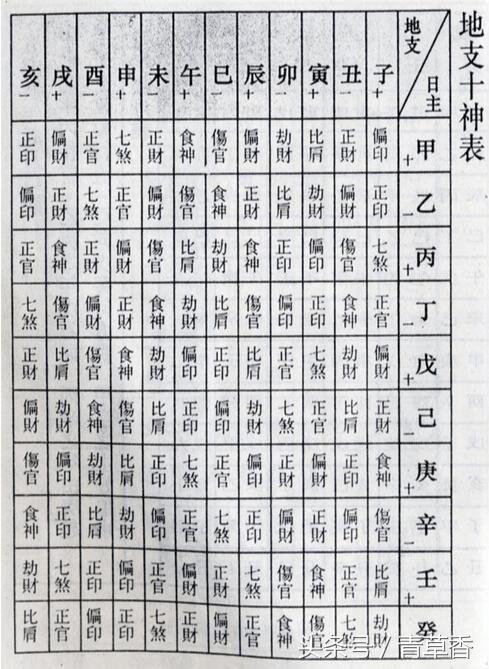 地支十神表
地支 日主
子+ 丑− 寅+ 卯− 辰+ 巳− 午+ 未− 申+ 酉− 戌+ 亥−
甲+ 偏印 正財 比肩 劫財 偏財 傷官 食神 正財 七煞 正官 偏財 正印
乙− 正印 偏財 劫財 比肩 正財 食神 傷官 偏財 正官 七煞 正財 偏印
丙+ 七煞 傷官 偏印 正印 食神 劫財 比肩 傷官 偏財 正財 食神 正官
丁− 正官 食神 正印 偏印 傷官 比肩 劫財 食神 正財 偏財 傷官 七煞
戊+ 偏財 劫財 七煞 正官 比肩 正印 偏印 劫財 食神 傷官 比肩 正財
己− 正財 比肩 正官 七煞 劫財 偏印 正印 比肩 傷官 食神 劫財 偏財
庚+ 食神 正印 偏財 正財 偏印 正官 七煞 正印 比肩 劫財 偏印 傷官
辛− 傷官 偏印 正財 偏財 正印 七煞 正官 偏印 劫財 比肩 正印 食神
壬+ 比肩 正官 食神 傷官 七煞 正財 偏財 正官 偏印 正印 七煞 劫財
癸 劫財 七煞 傷官 食神 正官 偏財 正財 七煞 正印 偏印 正官 比肩
头条号/青草香